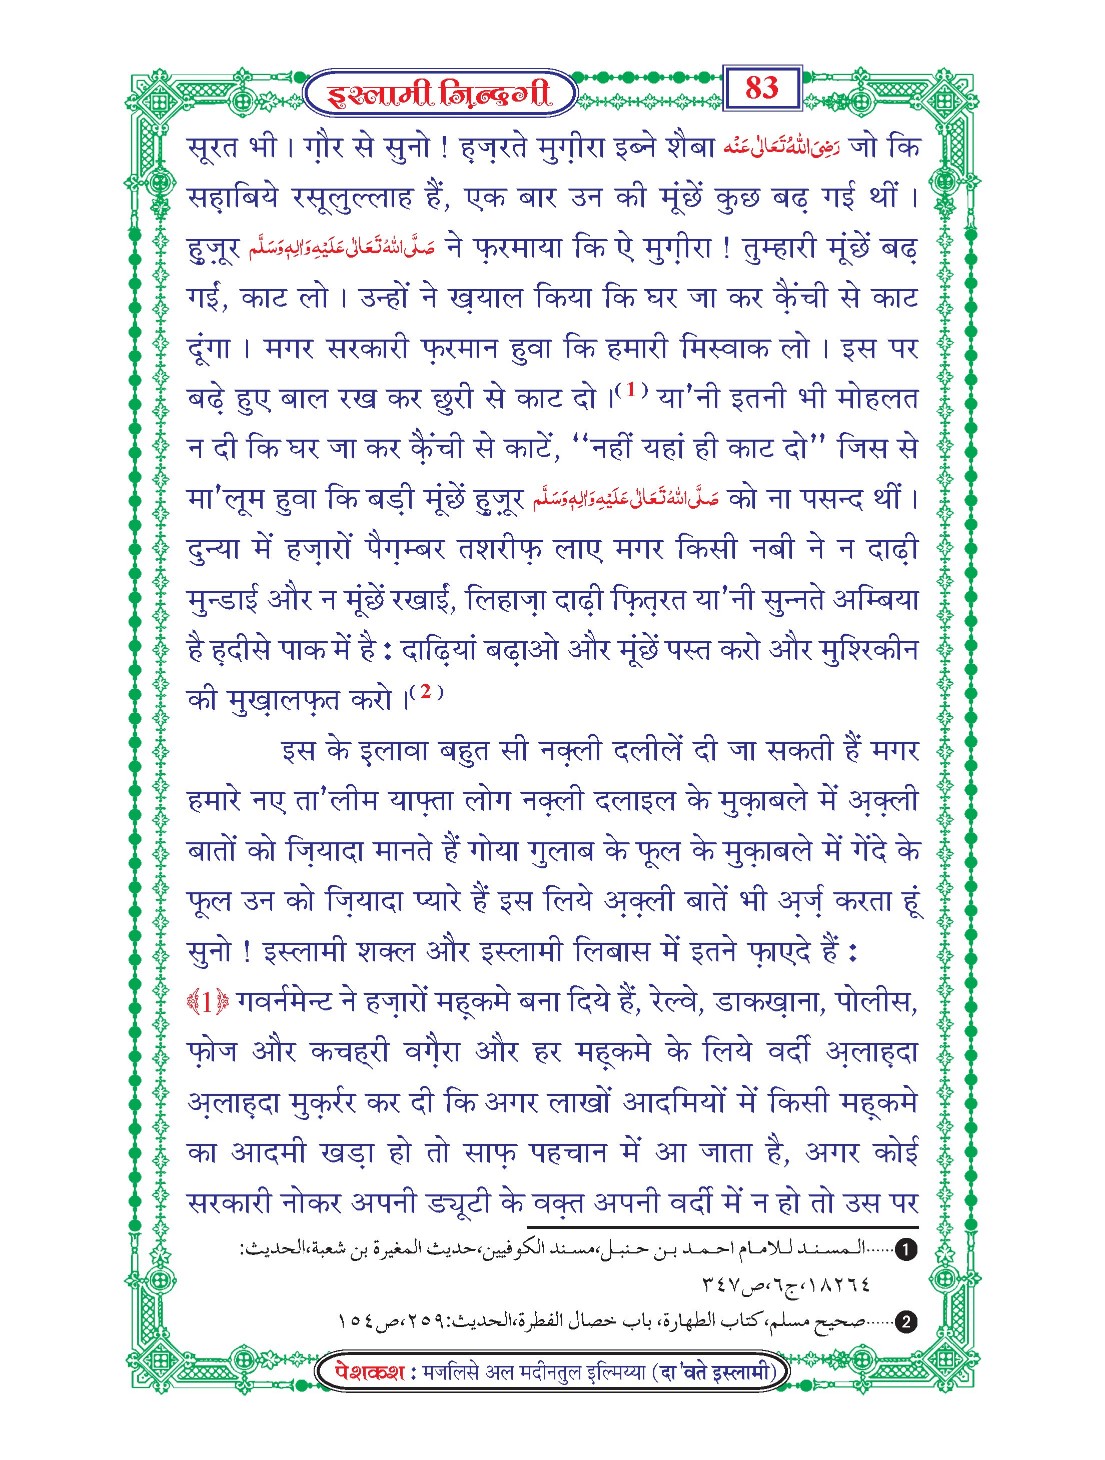 इस्लामी ज़िन्दगी
83
सूरत भी । ग़ौर से सुनो ! ह़ज़रते मुग़ीरा इब्ने शैबा رَضِیَ اللّٰہُ تَعَالٰی عَنْہ जो कि
सह़ाबिये रसूलुल्लाह हैं, एक बार उन की मूंछें कुछ बढ़ गई थीं ।
हुज़ूर صَلَّی اللّٰہُ تَعَالٰی عَلَیْہِ وَاٰلِہٖ وَسَلَّم ने फ़रमाया कि ऐ मुग़ीरा ! तुम्हारी मूंछें बढ़
गईं, काट लो । उन्हों ने ख़याल किया कि घर जा कर क़ैंची से काट
दूंगा । मगर सरकारी फ़रमान हुवा कि हमारी मिस्वाक लो । इस पर
बढ़े हुए बाल रख कर छुरी से काट दो ।(1) या'नी इतनी भी मोहलत
न दी कि घर जा कर क़ैंची से काटें, ‘‘नहीं यहां ही काट दो’’ जिस से
मा'लूम हुवा कि बड़ी मूंछें हुज़ूर صَلَّی اللّٰہُ تَعَالٰی عَلَیْہِ وَاٰلِہٖ وَسَلَّم को ना पसन्द थीं ।
दुन्या में हज़ारों पैग़म्बर तशरीफ़ लाए मगर किसी नबी ने न दाढ़ी
मुन्डाई और न मूंछें रखाईं, लिहाज़ा दाढ़ी फ़ित़रत या'नी सुन्नते अम्बिया
है ह़दीसे पाक में है : दाढ़ियां बढ़ाओ और मूंछें पस्त करो और मुश्रिकीन
की मुख़ालफ़त करो ।(2)
इस के इ़लावा बहुत सी नक़्ली दलीलें दी जा सकती हैं मगर
हमारे नए ता'लीम याफ़्ता लोग नक़्ली दलाइल के मुक़ाबले में अ़क़्ली
बातों को ज़ियादा मानते हैं गोया गुलाब के फूल के मुक़ाबले में गेंदे के
फूल उन को ज़ियादा प्यारे हैं इस लिये अ़क़्ली बातें भी अ़र्ज़ करता हूं
सुनो ! इस्लामी शक्ल और इस्लामी लिबास में इतने फ़ाएदे हैं :
﴾1﴿ गवर्नमेन्ट ने हज़ारों मह़्कमे बना दिये हैं, रेल्वे, डाकख़ाना, पोलीस,
फ़ोज और कचह्री वग़ैरा और हर मह़्कमे के लिये वर्दी अ़लाह़दा
अ़लाह़दा मुक़र्रर कर दी कि अगर लाखों आदमियों में किसी मह़्कमे
का आदमी खड़ा हो तो साफ़ पहचान में आ जाता है, अगर कोई
सरकारी नोकर अपनी ड्यूटी के वक़्त अपनी वर्दी में न हो तो उस पर
❶......المسند للامام احمد بن حنبل،مسند الكوفيين،حديث المغيرة بن شعبة،الحديث:
١٨٢٦٤،ج٦،ص٣٤٧
❷......صحيح مسلم،كتاب الطهارة، باب خصال الفطرة،الحديث:٢٥٩،ص١٥٤
पेशकश : मजलिसे अल मदीनतुल इ़ल्मिय्या (दा'वते इस्लामी)